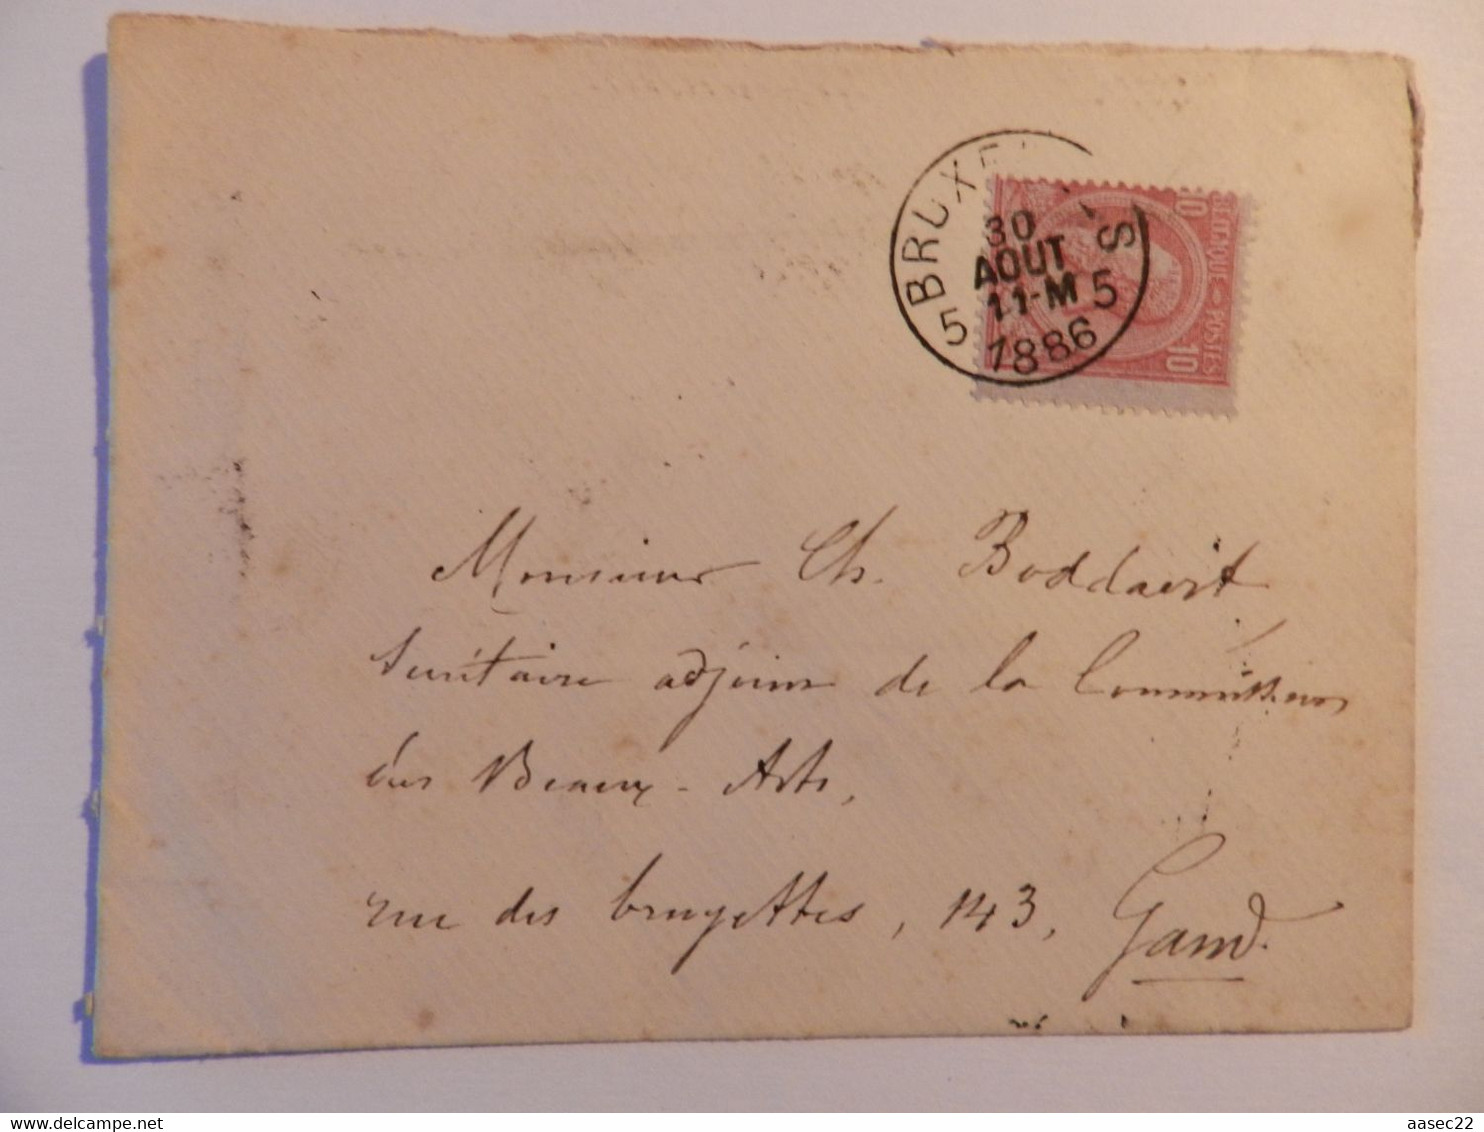 BRUXE S
30
AOUT
11-M
5 5
1886
10
BELGIQUE POSTES
10
Monsieur Ch. Boddaert
Secrétaire adjoint de la Commission
des Beaux-Arts,
rue des bruyettes, 143, Gand.
delcampe.net
aasec22